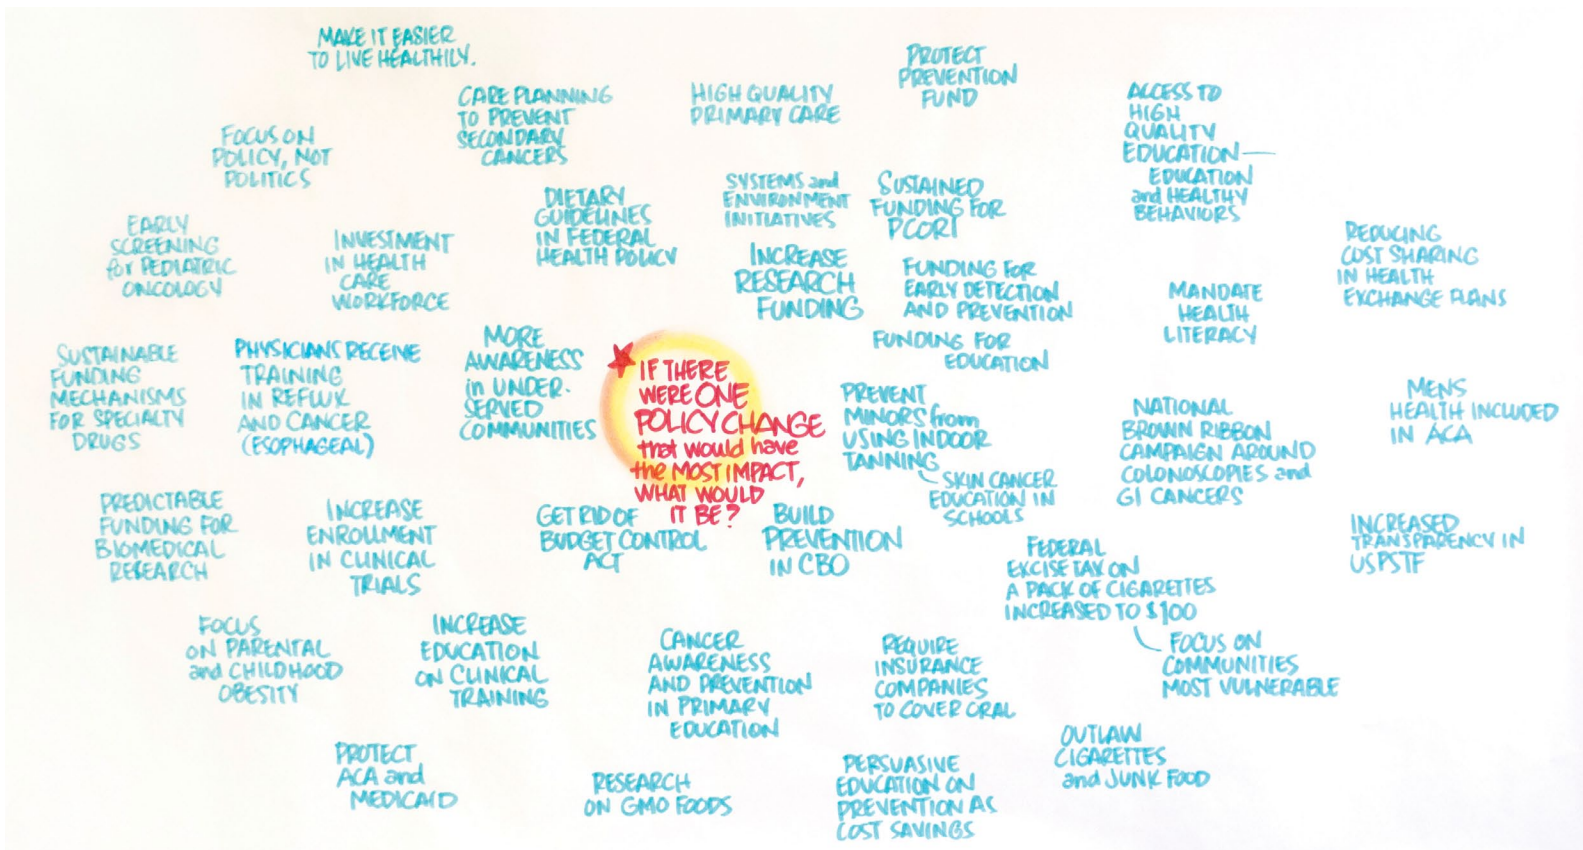 MAKE IT EASIER
TO LIVE HEALTHILY.
CARE PLANNING
TO PREVENT
SECONDARY
CANCERS
HIGH QUALITY
PRIMARY CARE
PROTECT
PREVENTION
FUND
ACCESS TO
HIGH
QUALITY
EDUCATION—
EDUCATION
and HEALTHY
BEHAVIORS
FOCUS ON
POLICY, NOT
POLITICS
DIETARY
GUIDELINES
IN FEDERAL
HEALTH POLICY
SYSTEMS and
ENVIRONMENT
INITIATIVES
SUSTAINED
FUNDING FOR
PCORI
EARLY
SCREENING
for PEDIATRIC
ONCOLOGY
INVESTMENT
IN HEALTH
CARE
WORKFORCE
INCREASE
RESEARCH
FUNDING
FUNDING FOR
EARLY DETECTION
AND PREVENTION
MANDATE
HEALTH
LITERACY
REDUCING
COST SHARING
IN HEALTH
EXCHANGE PLANS
SUSTAINABLE
FUNDING
MECHANISMS
FOR SPECIALTY
DRUGS
PHYSICIANS RECEIVE
TRAINING
IN REFLUX
AND CANCER
(ESOPHAGEAL)
MORE
AWARENESS
in UNDER-
SERVED
COMMUNITIES
IF THERE
WERE ONE
POLICY CHANGE
that would have
the MOST IMPACT,
WHAT WOULD
IT BE?
FUNDING FOR
EDUCATION
PREVENT
MINORS from
USING INDOOR
TANNING
SKIN CANCER
EDUCATION IN
SCHOOLS
NATIONAL
BROWN RIBBON
CAMPAIGN AROUND
COLONOSCOPIES and
GI CANCERS
MENS
HEALTH INCLUDED
IN ACA
PREDICTABLE
FUNDING FOR
BIOMEDICAL
RESEARCH
INCREASE
ENROLLMENT
IN CLINICAL
TRIALS
GET RID OF
BUDGET CONTROL
ACT
BUILD
PREVENTION
IN CBO
FEDERAL
EXCISE TAX ON
A PACK OF CIGARETTES
INCREASED TO $100
FOCUS ON
COMMUNITIES
MOST VULNERABLE
INCREASED
TRANSPARENCY IN
USPSTF
FOCUS
ON PARENTAL
and CHILDHOOD
OBESITY
INCREASE
EDUCATION
ON CLINICAL
TRAINING
CANCER
AWARENESS
AND PREVENTION
IN PRIMARY
EDUCATION
REQUIRE
INSURANCE
COMPANIES
TO COVER ORAL
PROTECT
ACA and
MEDICAID
RESEARCH
ON GMO FOODS
PERSUASIVE
EDUCATION ON
PREVENTION AS
COST SAVINGS
OUTLAW
CIGARETTES
and JUNK FOOD